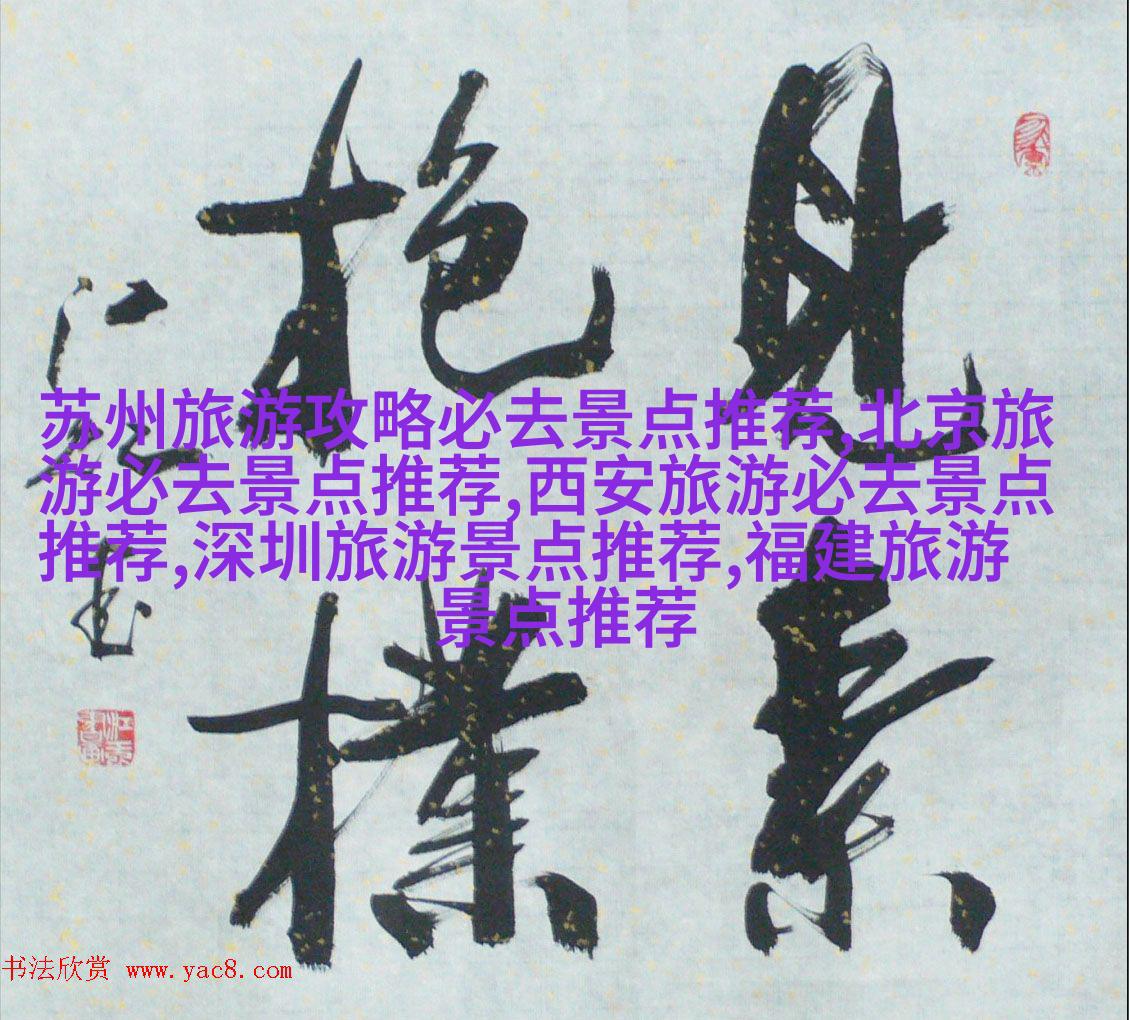 見素
抱樸
苏州旅游攻略必去景点推荐,北京旅
游必去景点推荐,西安旅游必去景点
推荐,深圳旅游景点推荐,福建旅游
景点推荐
书法欣赏 www.yac8.com